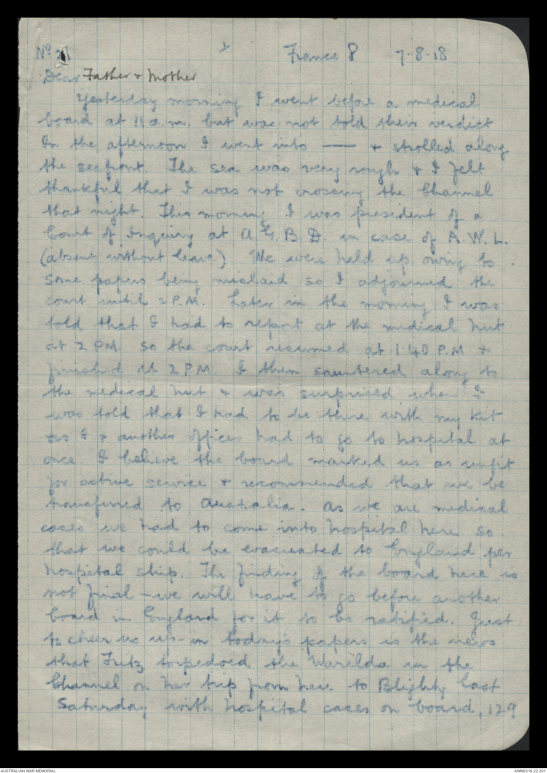 No 21 France 8 7.8.18
Dear Father & Mother
Yesterday morning I went before a medical
board at 11 a.m. but was not told their verdict
In the afternoon I went into —— & strolled along
the seafront. The sea was very rough & I felt
thankful that I was not crossing the Channel
that night. This morning I was president of a
Court of Inquiry at A.G.B.D. in case of A.W.L.
(absent without leave) We were held up owing to
some papers being mislaid so I adjourned the
court until 2 P.M. Later in the morning I was
told that I had to report at the medical hut
at 2 P.M. so the court resumed at 1.40 P.M &
finished at 2 P.M. I then sauntered along to
the medical hut & was surprised when I
was told that I had to be there with my kit
as I & another officer had to go to hospital at
once. I believe the board marked us as unfit
for active service & recommended that we be
transferred to Australia. As we are medical
cases we had to come into hospital here so
that we could be evacuated to England per
hospital ship. The finding of the board here is
not final – we will have to go before another
board in England for it to be ratified. Just
to cheer us up in today's papers is the news
that Fritz torpedoed the Warilda in the
Channel on her trip from here to Blighty last
Saturday with hospital cases on board, 129
AUSTRALIAN WAR MEMORIAL